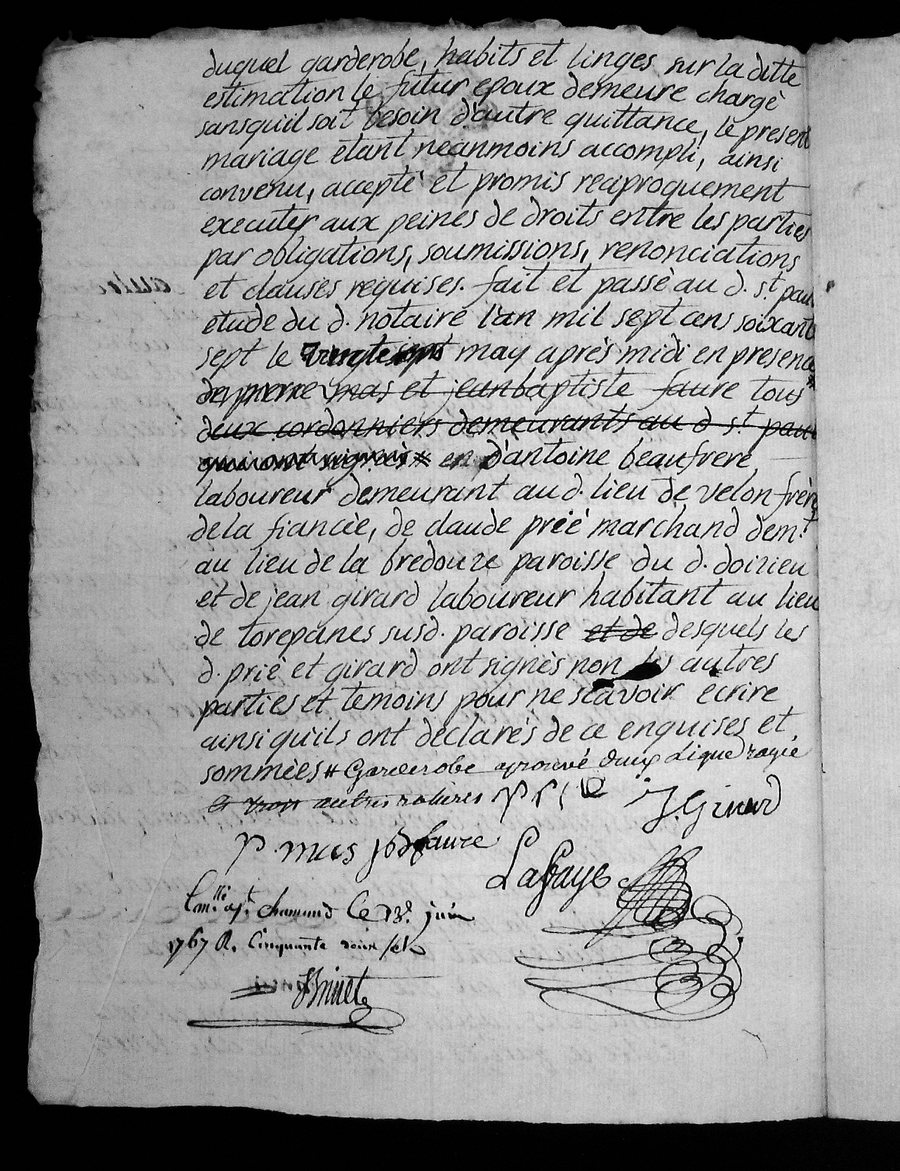 duquel garderobe, habits et linges sur la ditte
estimation le futur epoux demeure chargé
sansquil soit besoin d'autre quittance, le present
mariage etant neanmoins accompli, ainsi
convenu, accepté et promis reciproquement
executer aux peines de droits entre les parties
par obligations, soumissions, renonciations
et clauses requises. fait et passé au d. st. paul
etude du d. notaire l'an mil sept cens soixante
sept le vingt sept may aprés midi en presence
de pierre mas et jean baptiste faure tous
deux cordonniers demeurants au d. st. paul
qui ont signés # en d'antoine beaufrere
laboureur demeurant au d. lieu de velon frère
de la fiancée, de claude prié marchand demt.
au lieu de la bredouze paroisse du d. doizieu
et de jean girard laboureur habitant au lieu
de torepanes susd. paroisse et de desquels les
d. prié et girard ont signés non les autres
parties et temoins pour ne scavoir ecrire
ainsi quils ont déclarés de ce enquises et
sommées # Garderobe aprouvé deux ligne rayié
et trois autres
J. Girard
P. mas jb faure
Lafaye
chamond le 13e. juin
1767 R. Cinquante